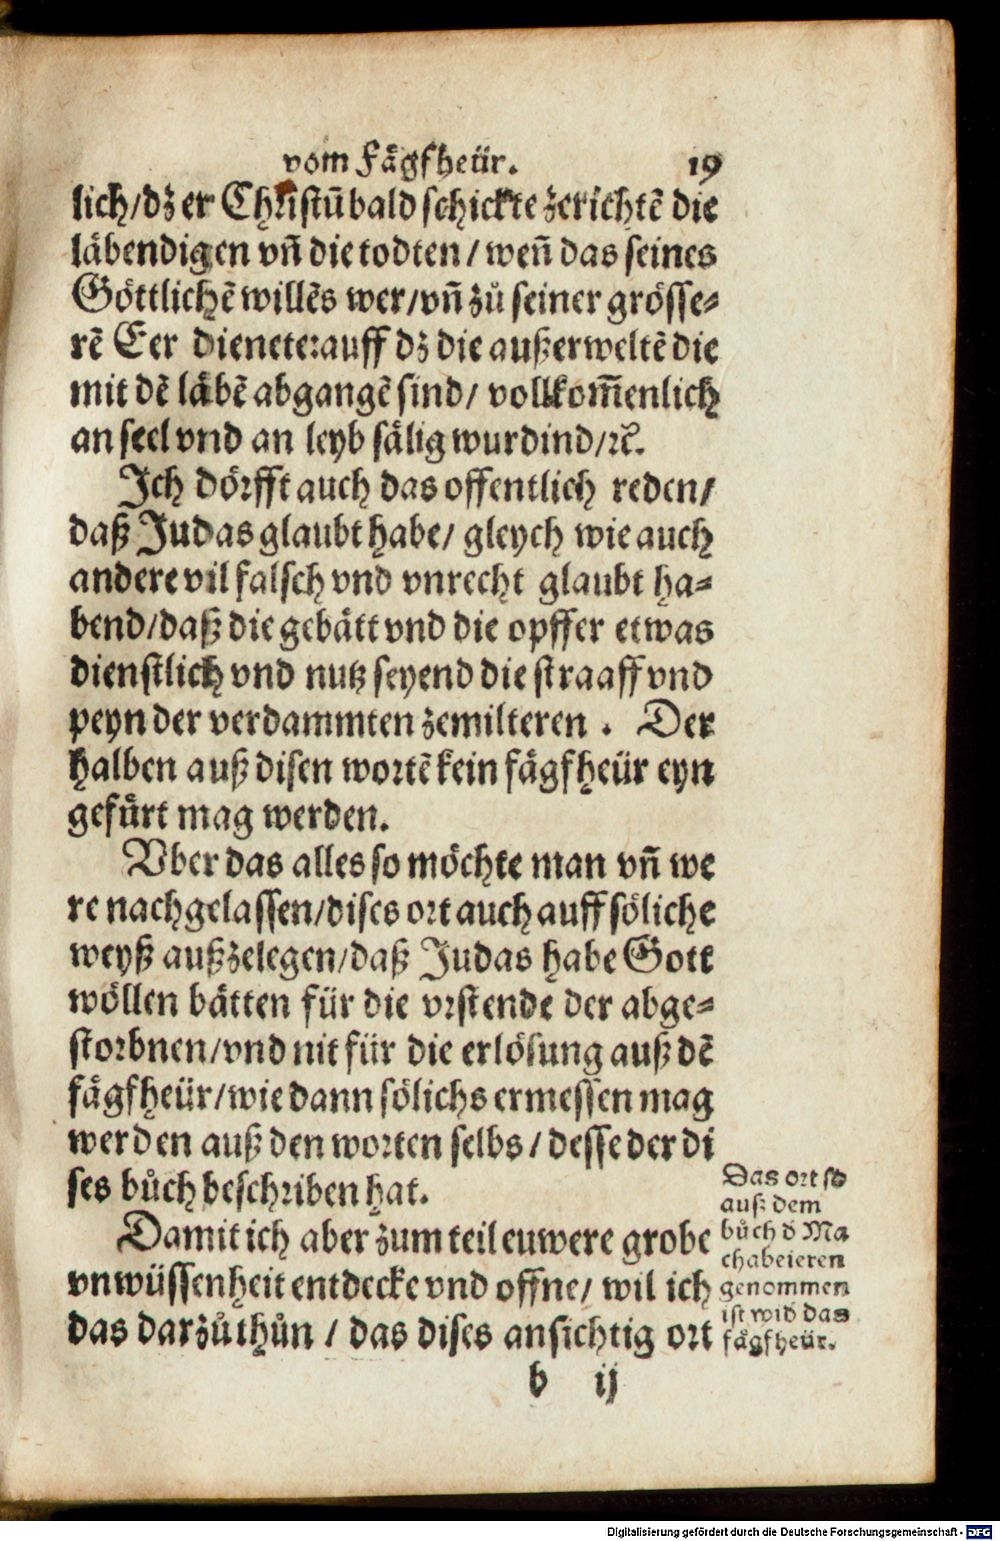 vom Fågfheür. 19
lich/dz er Christū bald schickte zerichtē die
låbendigen vn̄ die todten / wen̄ das seines
Göttlichē willēs wer/vn̄ zů seiner grösse⸗
rē Eer dienete:auff dz die außerweltē die
mit dē låbē abgangē sind/ vollkom̄enlich
an seel vnd an leyb sålig wurdind/ꝛc̄.
Ich dörfft auch das offentlich reden/
daß Judas glaubt habe/ gleych wie auch
andere vil falsch vnd vnrecht glaubt ha⸗
bend/daß die gebått vnd die opffer etwas
dienstlich vnd nutz seyend die straaff vnd
peyn der verdammten zemilteren . Der
halben auß disen wortē kein fågfheür eyn
gefůrt mag werden.
Vber das alles so möchte man vn̄ we
re nachgelassen/dises ort auch auff söliche
weyß außzelegen/daß Judas habe Gott
wöllen båtten für die vrstende der abge⸗
storbnen/vnd nit für die erlösung auß dē
fågfheür/wie dann sölichs ermessen mag
werden auß den worten selbs / desse der di
ses bůch beschriben hat.
Damit ich aber zum teil euwere grobe
vnwüssenheit entdecke vnd offne/ wil ich
das darzůthůn / das dises ansichtig ort
Das ort so
auß dem
bůch d Ma
chabeieren
genommen
ist wid das
fågfheür.
b ij
Digitalisierung gefördert durch die Deutsche Forschungsgemeinschaft - DFG